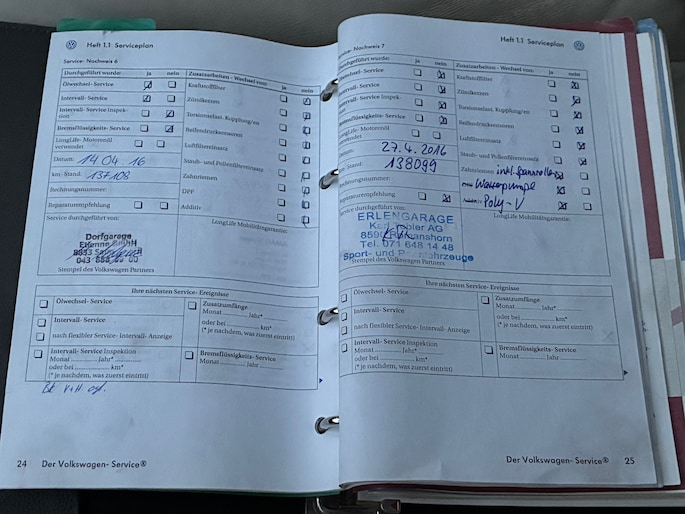 Heft 1.1 Serviceplan
Service- Nachweis 6
Durchgeführt wurde: ja nein
Ölwechsel- Service
Intervall- Service
Intervall- Service Inspek-
tion
Bremsflüssigkeits- Service
LongLife- Motorenöl
verwendet
Datum: 14.04.16
km- Stand: 137108
Rechnungsnummer:
Reparaturempfehlung
Service durchgeführt von:
Dorfgarage
Etienne GmbH
Stempel des Volkswagen Partners
Zusatzarbeiten - Wechsel von: ja nein
Kraftstofffilter
Zündkerzen
Torsionselast. Kupplung/en
Reifendruckensoren
Luftfiltereinsatz
Staub- und Pollenfiltereinsatz
Zahnriemen
DPF
Additiv
LongLife Mobilitätsgarantie:
Ihre nächsten Service- Ereignisse
Ölwechsel- Service
Intervall- Service
nach flexibler Service- Intervall- Anzeige
Intervall- Service Inspektion
Monat ............ Jahr*............
oder bei ................ km*
(* je nachdem, was zuerst eintritt)
Zusatzumfänge
Monat ............ Jahr*............
oder bei ................ km*
(* je nachdem, was zuerst eintritt)
Bremsflüssigkeits- Service
Monat ............ Jahr ............
24 Der Volkswagen- Service®
Heft 1.1 Serviceplan
Service- Nachweis 7
Durchgeführt wurde: ja nein
Ölwechsel- Service
Intervall- Service
Intervall- Service Inspek-
Bremsflüssigkeits- Service
LongLife- Motorenöl
27.4.2016
Stand: 138099
Rechnungsnummer:
Reparaturempfehlung
Service durchgeführt von:
ERLENGARAGE
AG
Tel. 071 648 14 48
Sport- und
Stempel des Volkswagen Partners
Zusatzarbeiten - Wechsel von: ja nein
Kraftstofffilter
Zündkerzen
Torsionselast. Kupplung/en
Reifendruckensoren
Luftfiltereinsatz
Staub- und Pollenfiltereinsatz
Zahnriemen inkl. Spannrolle
Wasserpumpe
Poly-V
LongLife Mobilitätsgarantie:
Ihre nächsten Service- Ereignisse
Ölwechsel- Service
Intervall- Service
nach flexibler Service- Intervall- Anzeige
Intervall- Service Inspektion
Monat ............ Jahr*............
oder bei ................ km*
(* je nachdem, was zuerst eintritt)
Zusatzumfänge
Monat ............ Jahr*............
oder bei ................ km*
(* je nachdem, was zuerst eintritt)
Bremsflüssigkeits- Service
Monat ............ Jahr ............
Der Volkswagen- Service® 25